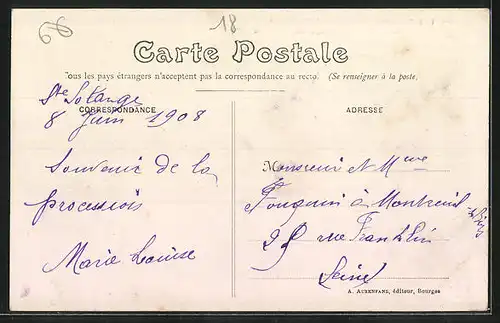 18
66
Carte Postale
Tous les pays étrangers n'acceptent pas la correspondance au recto. (Se renseigner à la poste.
Ste Solange
CORRESPONDANCE
8 Juin 1908
Souvenir de la
procession
Marie Louise
ADRESSE
Monsieur et Mme
à Montreuil
s/Bois
25 rue Franklin
Seine
A. AUXENFANS, éditeur, Bourges